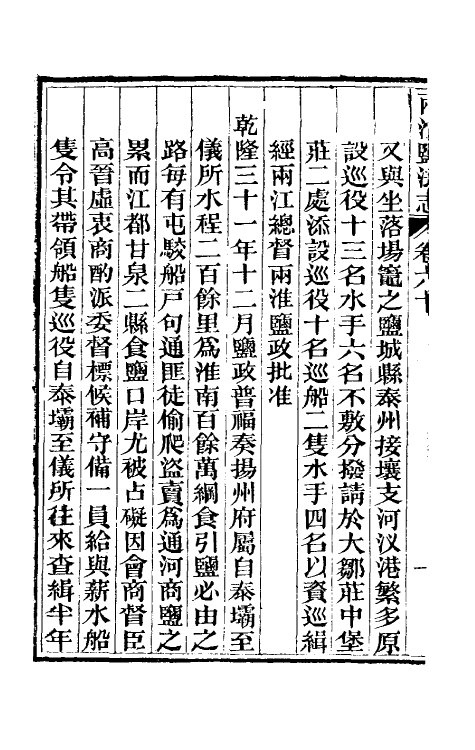 兩淮鹽法志 卷六十
又與坐落場竈之鹽城縣泰州接壤支河汊港繁多原
設巡役十三名水手六名不敷分撥請於大鄒莊中堡
莊二處添設巡役十名巡船二隻水手四名以資巡緝
經兩江總督兩淮鹽政批准
乾隆三十一年十二月鹽政普福奏揚州府屬自泰壩至
儀所水程二百餘里爲淮南百餘萬綱食引鹽必由之
路每有屯駁船戶句通匪徒偷爬盜賣爲通河商鹽之
累而江都甘泉二縣食鹽口岸尤被占礙因會商督臣
高晉虛衷商酌派委督標候補守備一員給與薪水船
隻令其帶領船隻巡役自泰壩至儀所往來查緝半年